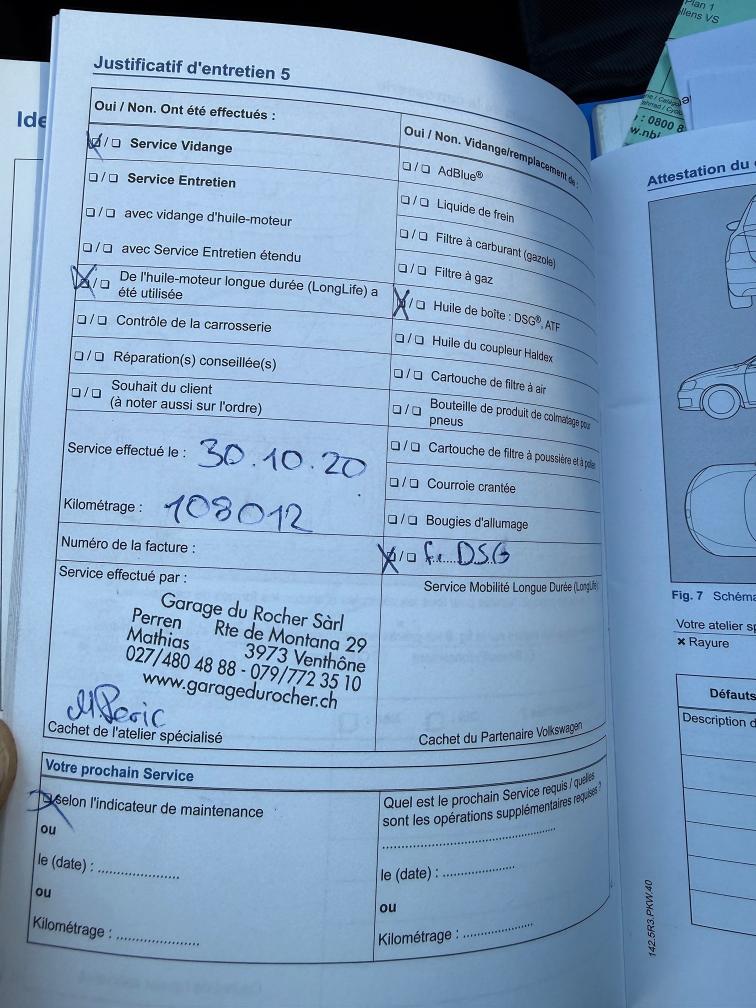 Plan 1
llens VS
: 0800 8
Ide
Justificatif d'entretien 5
Oui / Non. Ont été effectués :
☒/☐ Service Vidange
☐/☐ Service Entretien
☐/☐ avec vidange d'huile-moteur
☐/☐ avec Service Entretien étendu
☒/☐ De l'huile-moteur longue durée (LongLife) a
été utilisée
☐/☐ Contrôle de la carrosserie
☐/☐ Réparation(s) conseillée(s)
☐/☐ Souhait du client
(à noter aussi sur l'ordre)
Service effectué le : 30.10.20
Kilométrage : 108012
Numéro de la facture :
Service effectué par :
Garage du Rocher Sàrl
Perren Rte de Montana 29
Mathias 3973 Venthône
027/480 48 88 - 079/772 35 10
www.garagedurocher.ch
Cachet de l'atelier spécialisé
Oui / Non. Vidange/remplacement de :
☐/☐ AdBlue®
☐/☐ Liquide de frein
☐/☐ Filtre à carburant (gazole)
☐/☐ Filtre à gaz
☒/☐ Huile de boîte : DSG®, ATF
☐/☐ Huile du coupleur Haldex
☐/☐ Cartouche de filtre à air
☐/☐ Bouteille de produit de colmatage pour
pneus
☐/☐ Cartouche de filtre à poussière et à pollen
☐/☐ Courroie crantée
☐/☐ Bougies d'allumage
☒/☐ DSG
Service Mobilité Longue Durée (LongLife)
Cachet du Partenaire Volkswagen
Votre prochain Service
☒ selon l'indicateur de maintenance
ou
le (date) : ....................
ou
Kilométrage : ....................
Quel est le prochain Service requis / quelles
sont les opérations supplémentaires requises ?
........................................
le (date) : .................
ou
Kilométrage : .................
142.5R3.PKW.40
Attestation du
Fig. 7 Schéma
Votre atelier sp
× Rayure
Défauts
Description d